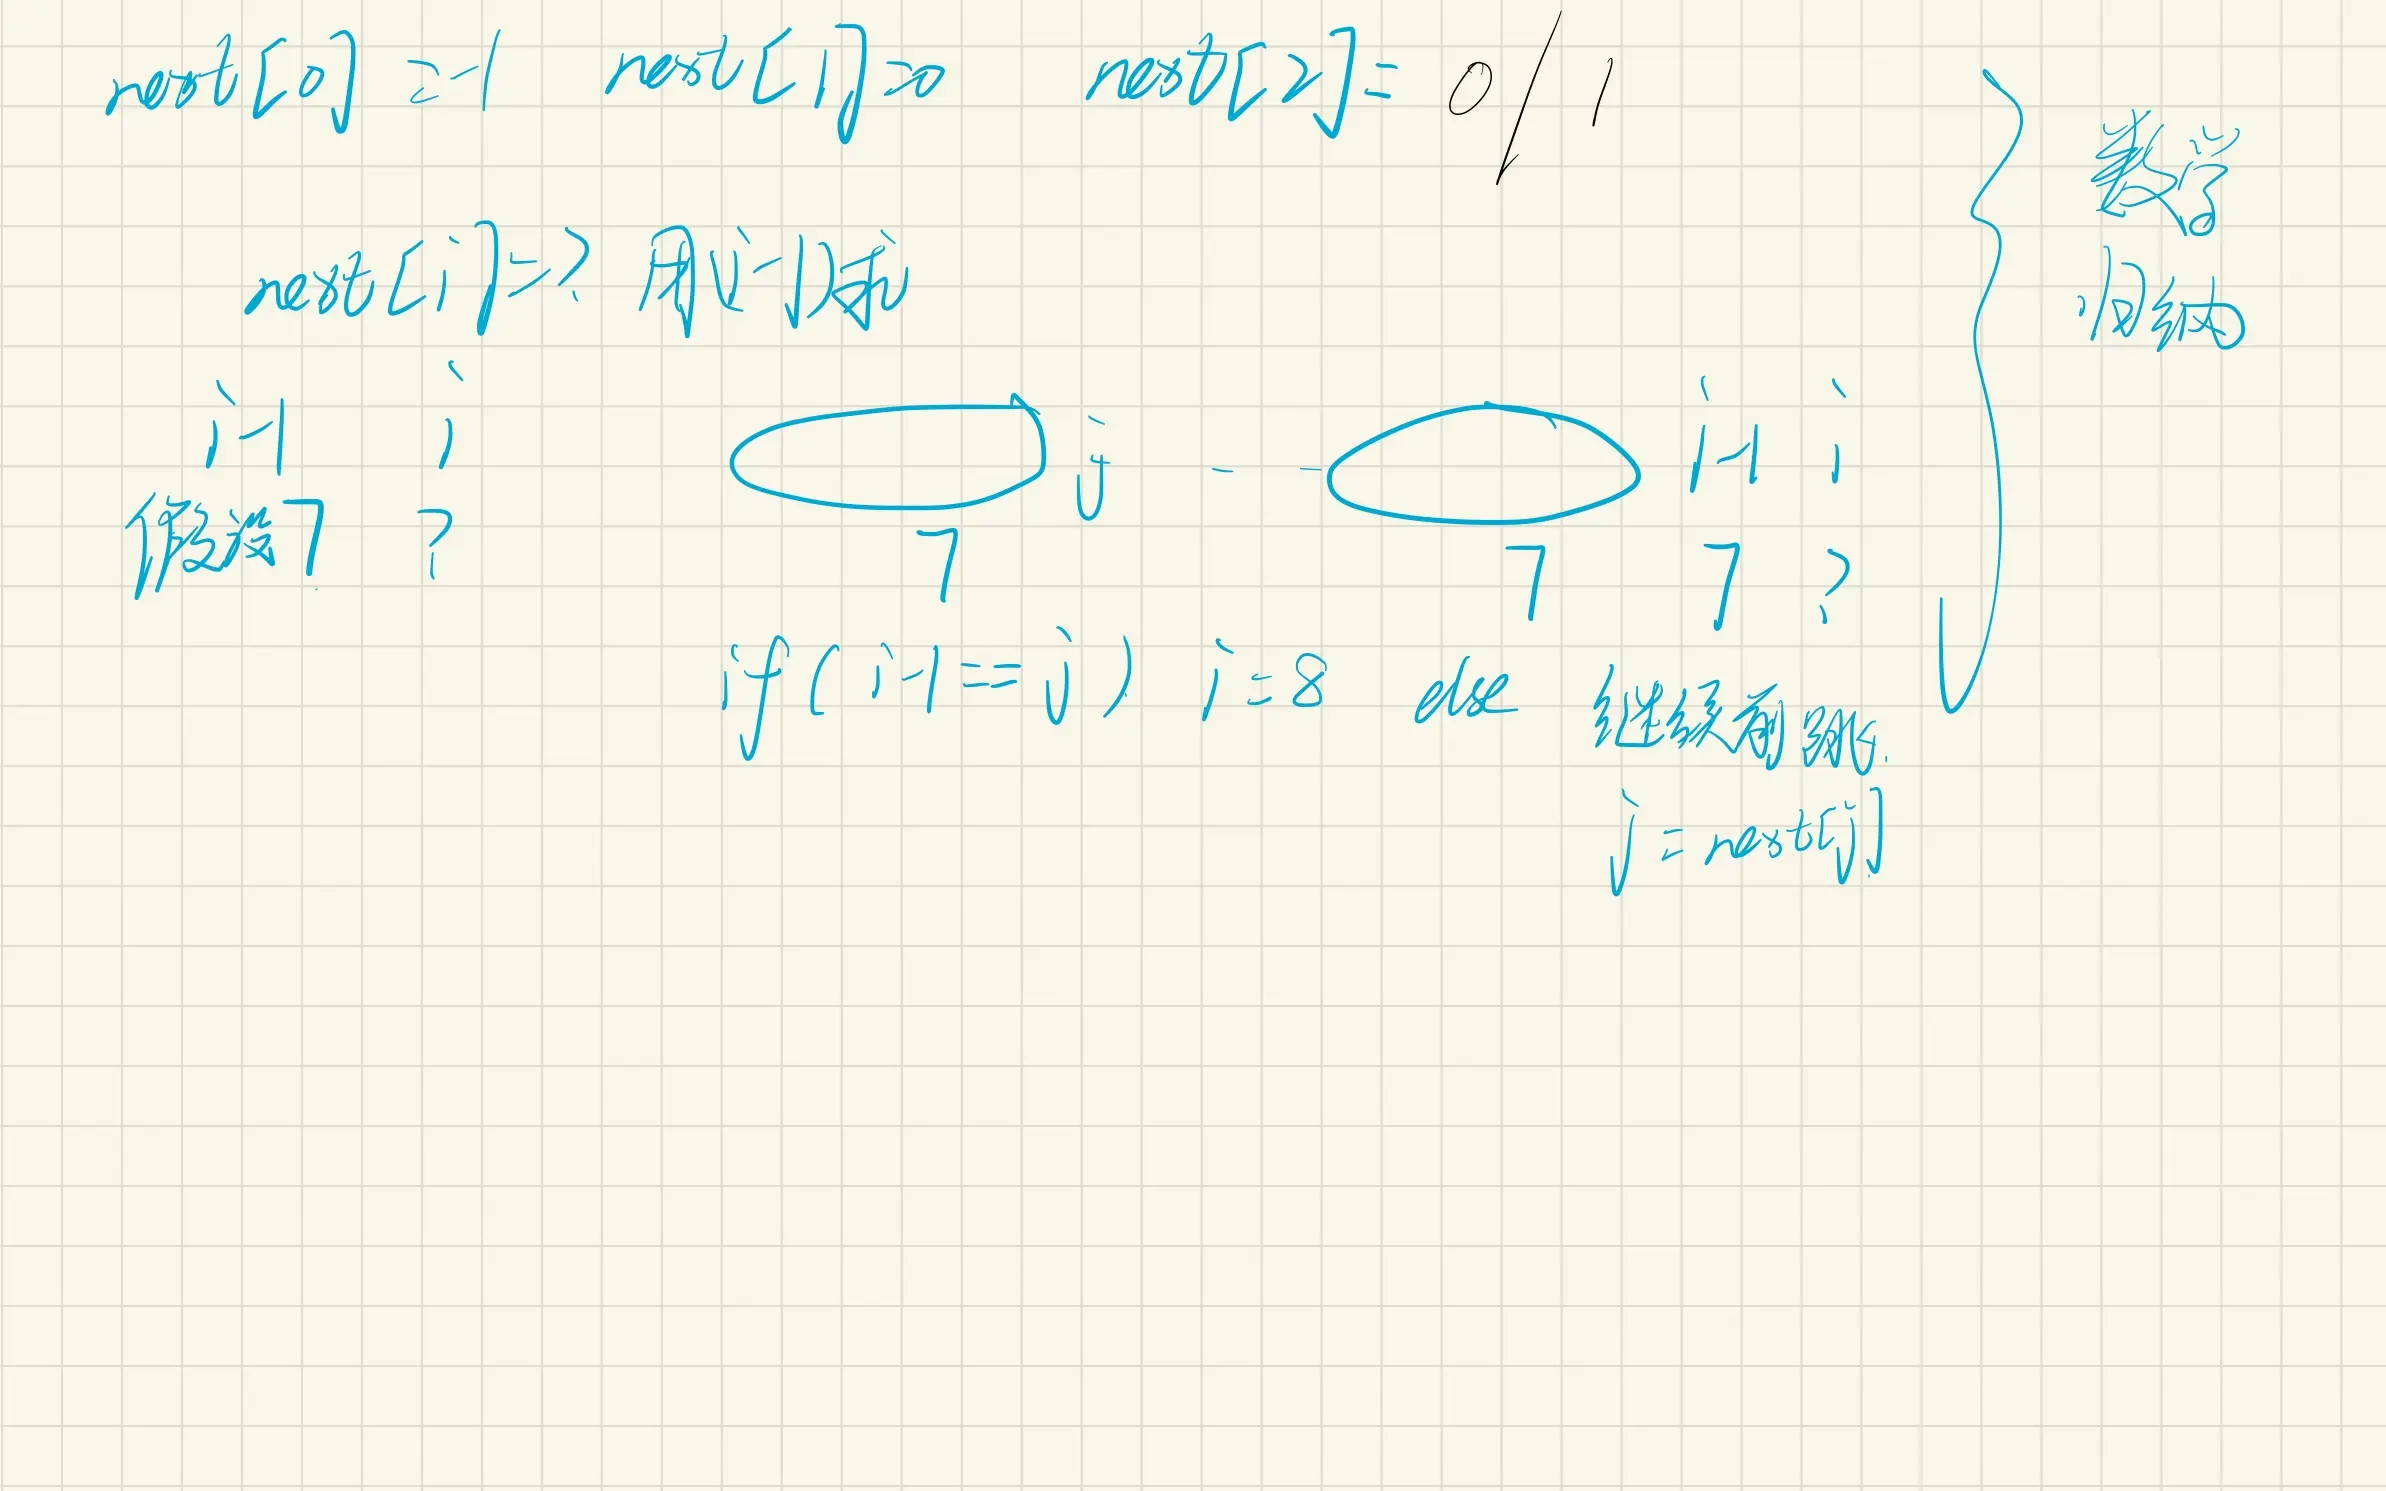 next[0] = -1 next[1] = 0 next[2] = 0/1
next[i] = ? 用(i-1)求
i-1 i
假设7 ?
j -- i-1 i
7 7 7 ?
if(i-1 == j) i = 8 else 继续前跳
j = next[j]
数学
归纳